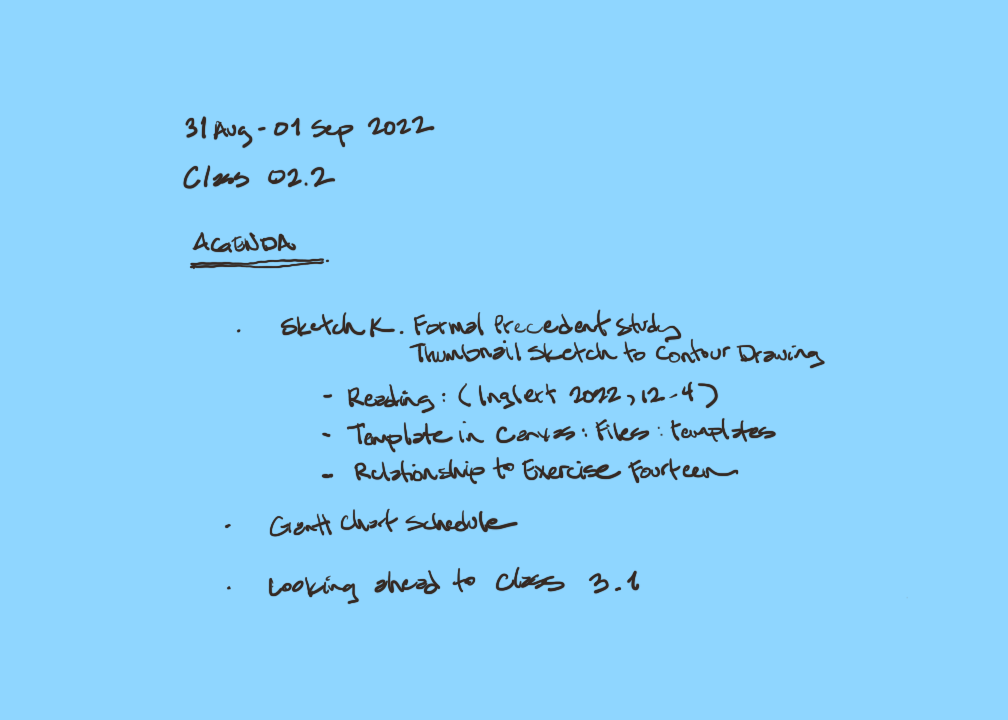 31 Aug - 01 Sep 2022
Class 02.2
AGENDA
· Sketch K. Formal Precedent Study
Thumbnail Sketch to Contour Drawing
- Reading: (Inglext 2022, 12-4)
- Template in Canvas: Files: templates
- Relationship to Exercise Fourteen
· Gantt Chart Schedule
· Looking ahead to Class 3.1